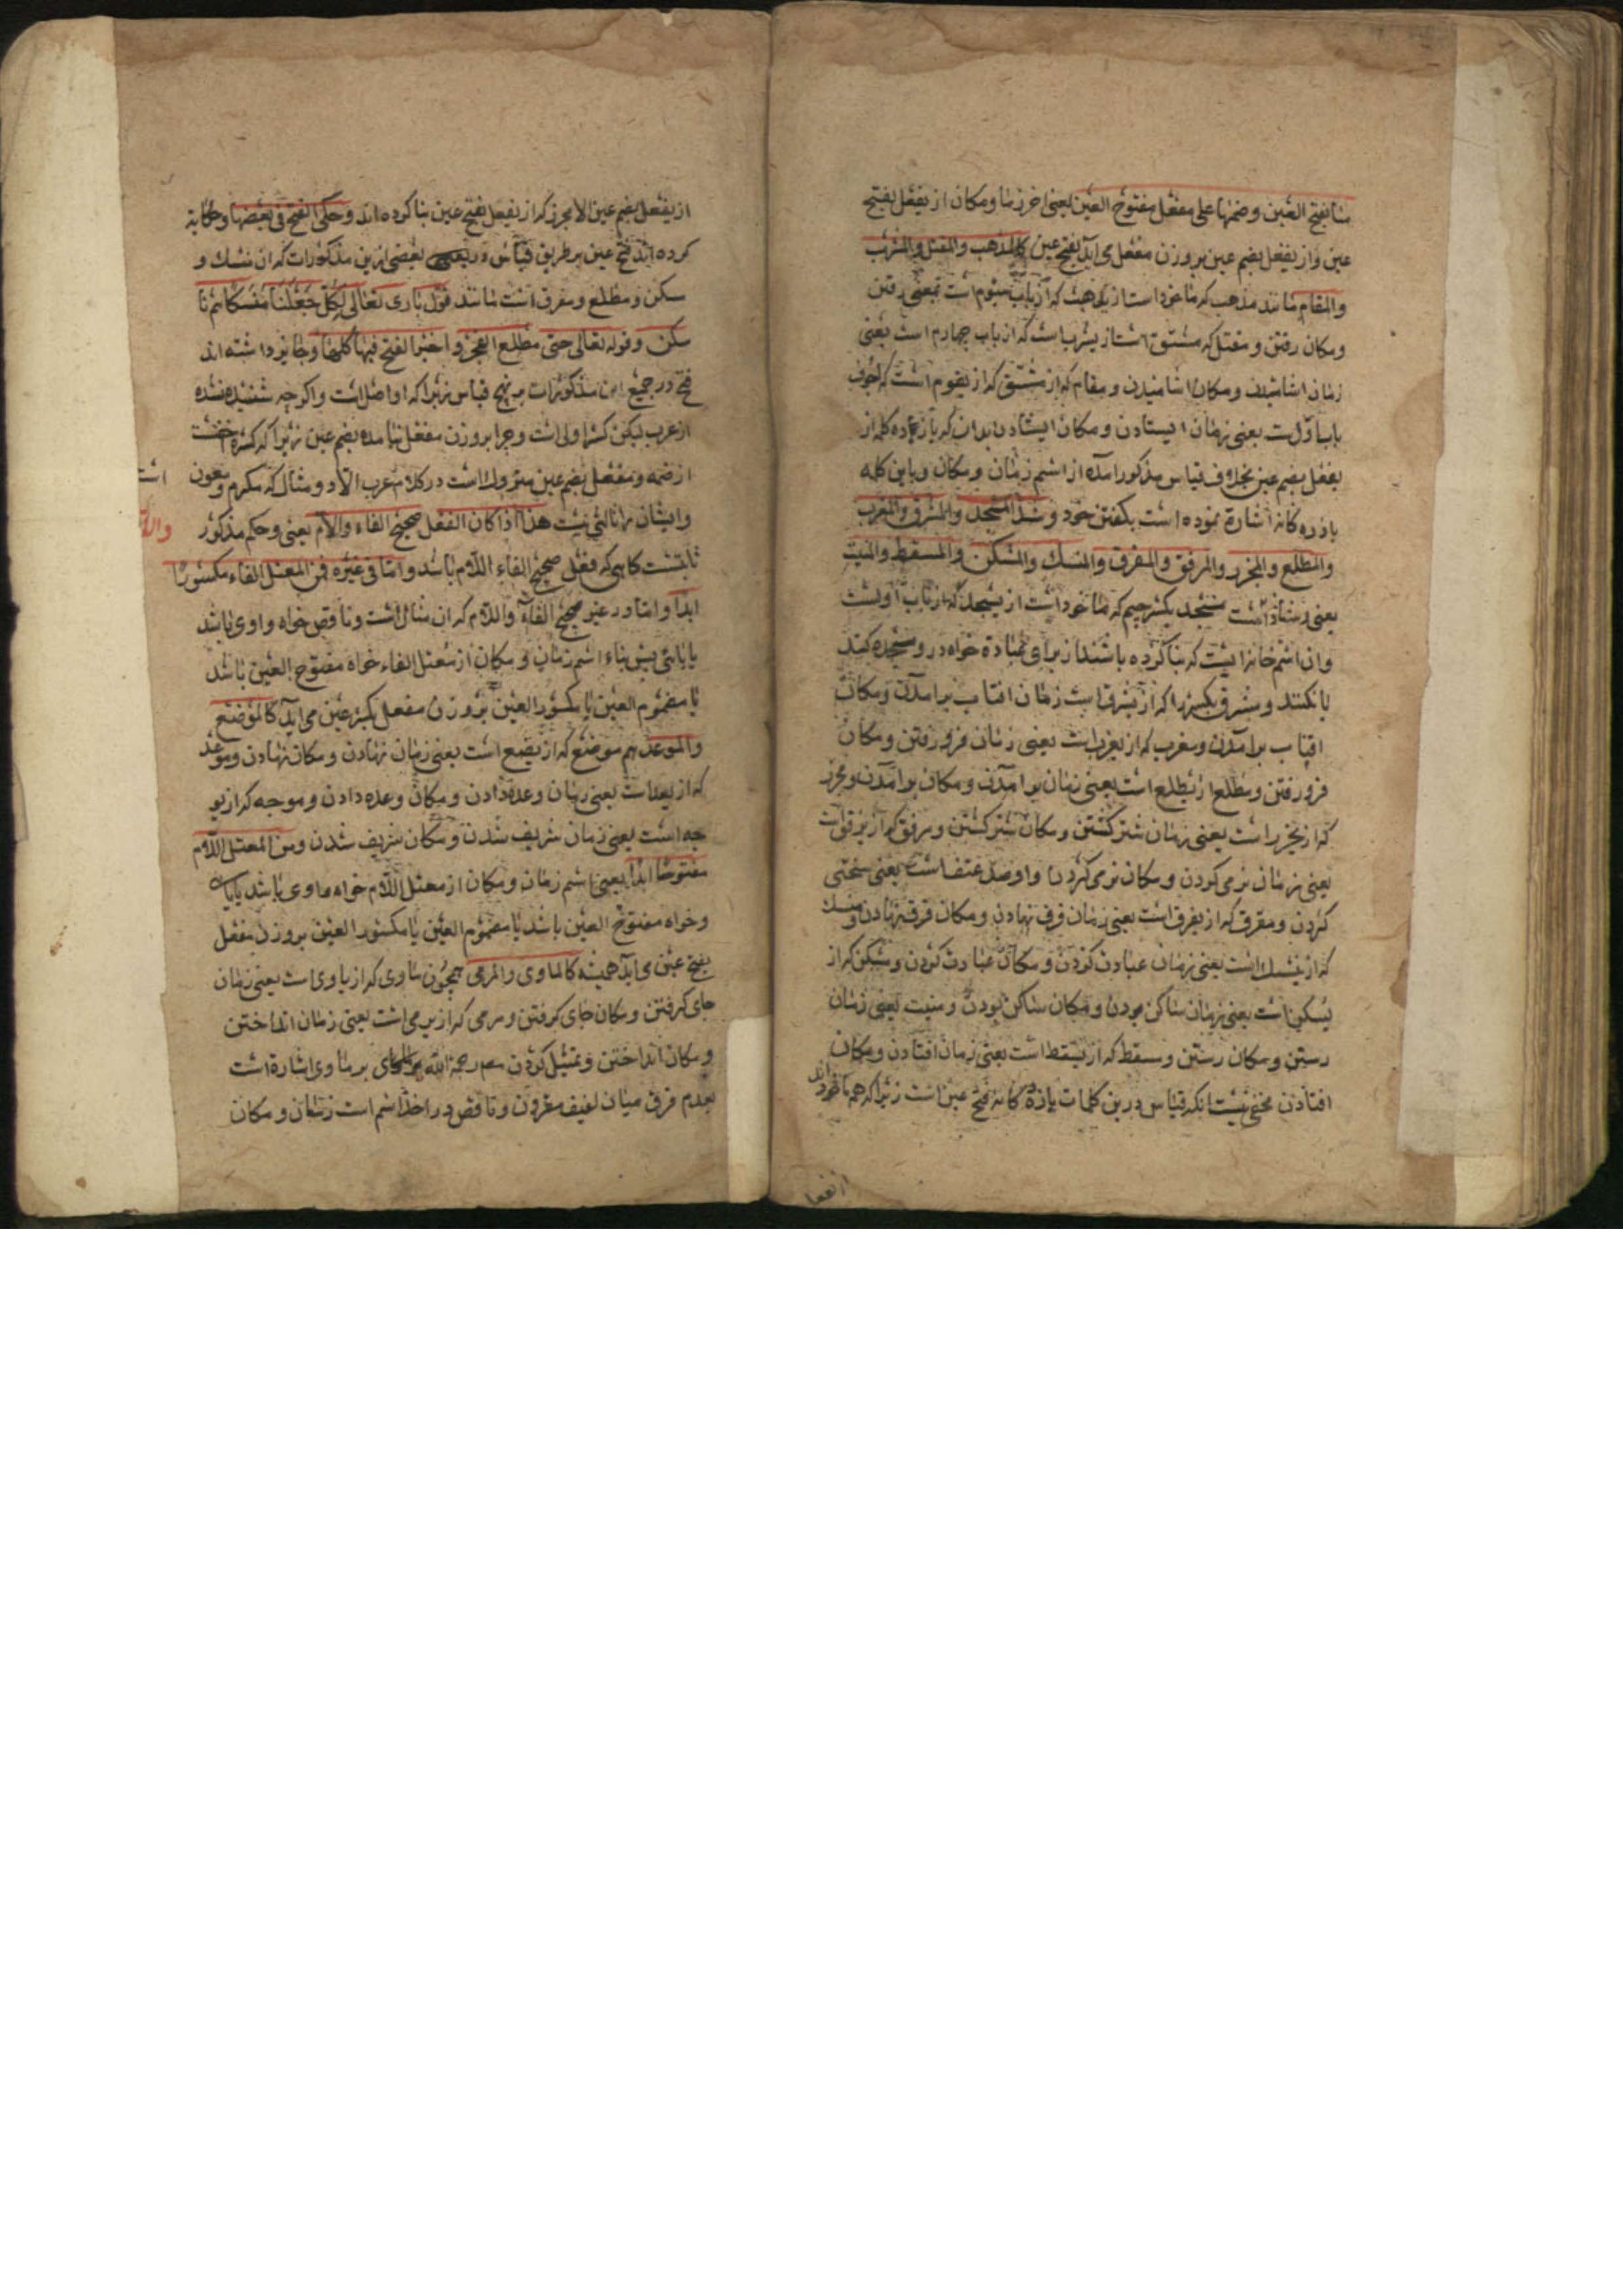 منا بفتح العین وضمها علی مفعل مفتوح العین یعنی اخر زمان و مکان از یفعل بفتح
عین و از یفعل بضم عین بر وزن مفعل می آید بفتح عین کالمذهب والمقتل والمشرب
والمقام مانند مذهب که ماخوداست از یذهب که از باب سیوم است بمعنی رفتن
و مکان رفتن و مقتل که مشتق است از یشرب است که از باب چهارم است یعنی
زمان اشامیدن و مکان اشامیدن و مقام که از مشتق که از یقوم است که اجوف
باب اول ست یعنی زمان ایستادن و مکان ایستادن بدان که یازده کلمه از
یفعل بضم عین بخلاف قیاس مذکور امده از اسم زمان و مکان و باین کلمه
یازده کانه اشارة نموده است بکفتن خود وشذ المسجد والمشرق والمغرب
والمطلع والمجزر والمرفق والمفرق والمنسک والمسکن والمسقط والمنبت
یعنی و شاذ است مسجد بکسر جیم که ماخود است از یسجد که از باب اولست
وان اسم خانه ایست که بنا کرده باشند از برای عبادة خواه درو سجده کنند
یا نکنند و مشرق بکسر را که از یشرق است زمان افتاب برامدن و مکان
افتاب برامدن و مغرب که از یغرب است یعنی زمان فرورفتن و مکان
فرورفتن و مطلع از یطلع است یعنی زمان برامدن و مکان برامدن و مجزر
که از یجزر است یعنی زمان شتر کشتن و مکان شتر کشتن و مرفق که از یرفق است
یعنی زمان نرمی کردن و مکان نرمی کردن و او ضد عنف است یعنی سختی
کردن و مفرق که از یفرق است یعنی زمان فرق نهادن و مکان فرق نهادن و منسک
که از ینسک است یعنی زمان عبادت کردن و مکان عبادت کردن و مسکن که از
یسکن است یعنی زمان ساکن بودن و مکان ساکن بودن و منبت یعنی زمان
رستن و مکان رستن و مسقط که از یسقط است یعنی زمان افتادن و مکان
افتادن مخفی نیست انکه قیاس درین کلمات یازده کانه فتح عین است زیرا که همه ماخود اند
از یفعل
از یفعل بضم عین الا مجزر که از یفعل بفتح عین بنا کرده اند وحکی الفتح فی بعضها و حکایة
کرده اند فتح عین بر طریق قیاس در بعضی ازین مذکورات که ان منسک و
مسکن و مطلع و مفرق است مانند قول باری تعالی لکل جعلنا منسکا هم نا
سکن و قوله تعالی حتی مطلع الفجر و اختیر الفتح فیها کلها و جایز داشته اند
فتح در جمیع این مذکورات بر نهج قیاس زیرا که او اصل است و اکرچه شنیده نشده
از عرب لیکن کسر اولی است و چرا بر وزن مفعل نیامده بضم عین زیرا که کسره اخف است
از ضمه و مفعل بضم عین متروک است در کلام عرب الا دو مثال که مکرم و معون است
و ایشان را ثالثی نیست هذا اذا کان الفعل صحیح الفاء واللام یعنی و حکم مذکور
ثابتست کاهی که فعل صحیح الفاء اللام باشد واما فی غیره فمن المعتل الفاء مکسورا
ابدا و اما در غیر صحیح الفاء واللام که ان مثال است و ناقص خواه واوی باشد
یا یائی پس بناء اسم زمان و مکان از معتل الفاء خواه مفتوح العین باشد
یا مضموم العین یا مکسور العین بر وزن مفعل بکسر عین می اید کالموضع
والموعد هم موضع که از یضع است یعنی زمان نهادن و مکان نهادن و موعد
که از یعد است یعنی زمان وعده دادن و مکان وعده دادن و موجه که از یو
جه است یعنی زمان شریف شدن و مکان شریف شدن ومن المعتل اللام
مفتوحا ابدا یعنی اسم زمان و مکان از معتل اللام خواه واوی باشد یا یائی
و خواه مفتوح العین باشد یا مضموم العین یا مکسور العین بر وزن مفعل
بفتح عین می اید همیشه کالماوی والمرمی همچون ماوی که از یاوی است یعنی زمان
جای کرفتن و مکان جای کرفتن و مرمی که از یرمی است یعنی زمان انداختن
و مکان انداختن و تمثیل کردن مص رحمه الله بر ماوی اشارة است
بعدم فرق میان لفیف مقرون و ناقص در اخذ اسم است زمان و مکان